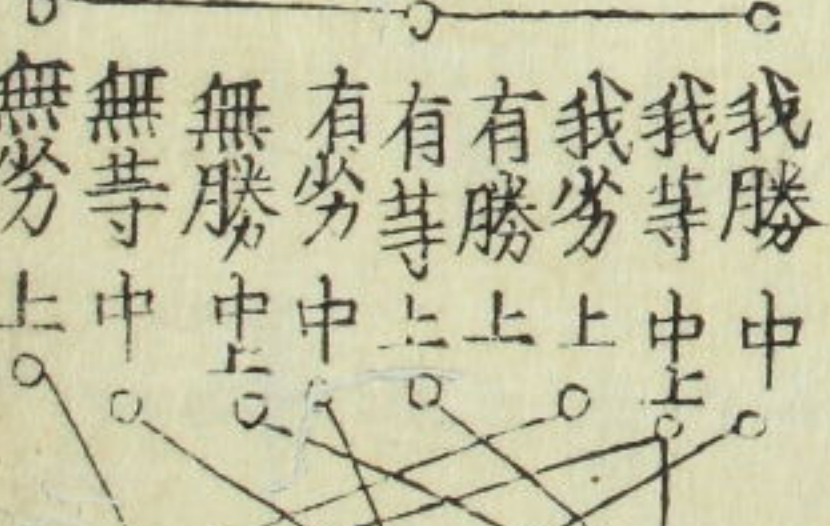 我勝中
我等中上
我劣上
有勝上
有等上
有劣中
無勝中上
無等中
無劣上